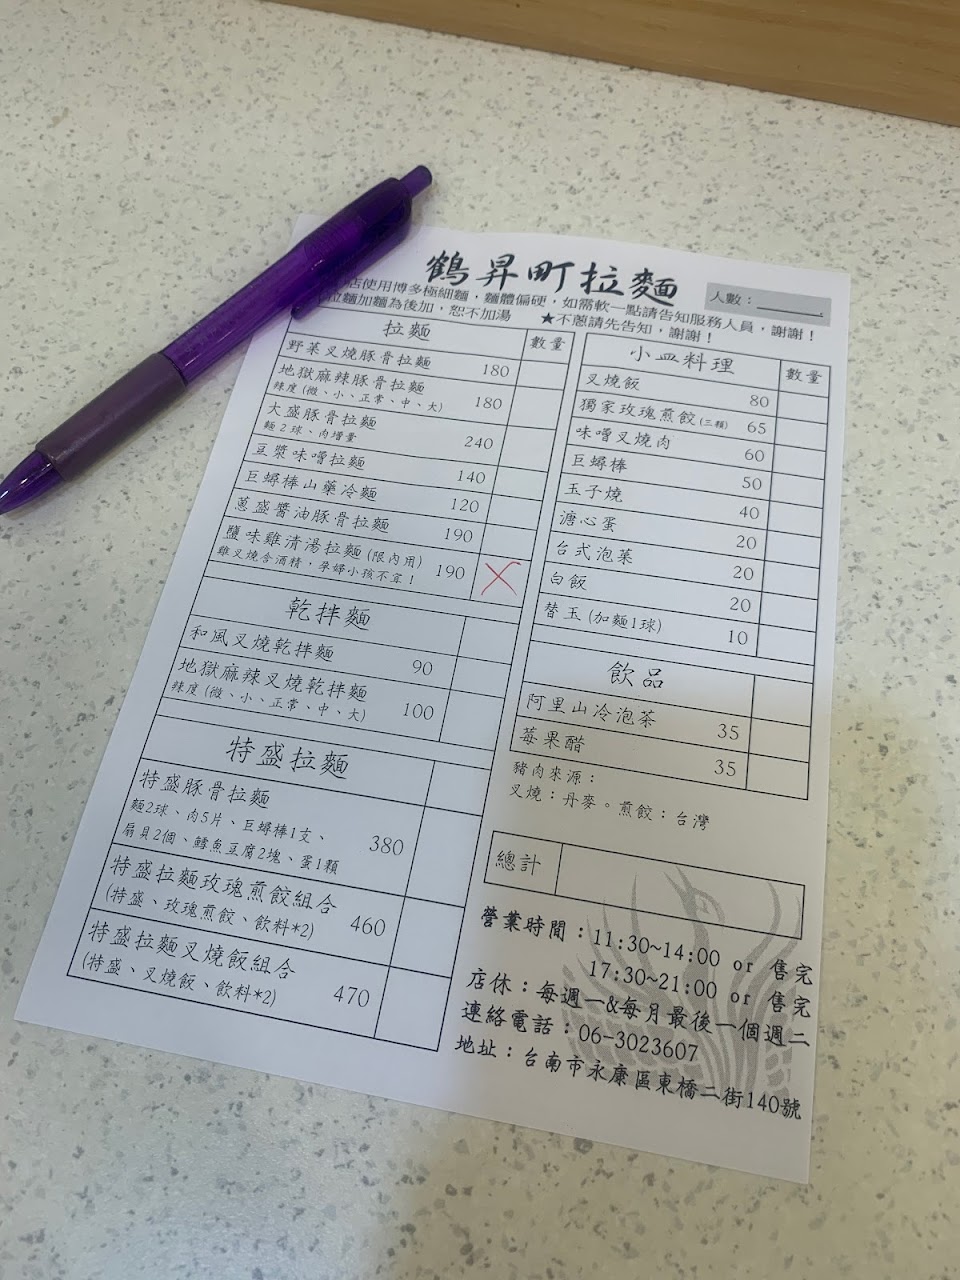 鶴昇町拉麵
人數：
店使用博多極細麵，麵體偏硬，如需軟一點請告知服務人員，謝謝！
拉麵加麵為後加，恕不加湯 ★不蔥請先告知，謝謝！
拉麵 數量
野菜叉燒豚骨拉麵 180
地獄麻辣豚骨拉麵 180
辣度(微、小、正常、中、大)
大盛豚骨拉麵 240
麵2球、肉增量
豆漿味噌拉麵 140
巨蟳棒山藥冷麵 120
蔥盛醬油豚骨拉麵 190
鹽味雞清湯拉麵(限內用) 190
雞叉燒含酒精，孕婦小孩不宜！
乾拌麵
和風叉燒乾拌麵 90
地獄麻辣叉燒乾拌麵 100
辣度(微、小、正常、中、大)
特盛拉麵
特盛豚骨拉麵 380
麵2球、肉5片、巨蟳棒1支、
扇貝2個、鱈魚豆腐2塊、蛋1顆
特盛拉麵玫瑰煎餃組合 460
(特盛、玫瑰煎餃、飲料*2)
特盛拉麵叉燒飯組合 470
(特盛、叉燒飯、飲料*2)
小皿料理 數量
叉燒飯 80
獨家玫瑰煎餃(三顆) 65
味噌叉燒肉 60
巨蟳棒 50
玉子燒 40
溏心蛋 20
台式泡菜 20
白飯 20
替玉(加麵1球) 10
飲品
阿里山冷泡茶 35
莓果醋 35
豬肉來源：
叉燒：丹麥。煎餃：台灣
總計
營業時間：11:30~14:00 or 售完
17:30~21:00 or 售完
店休：每週一&每月最後一個週二
連絡電話：06-3023607
地址：台南市永康區東橋二街140號